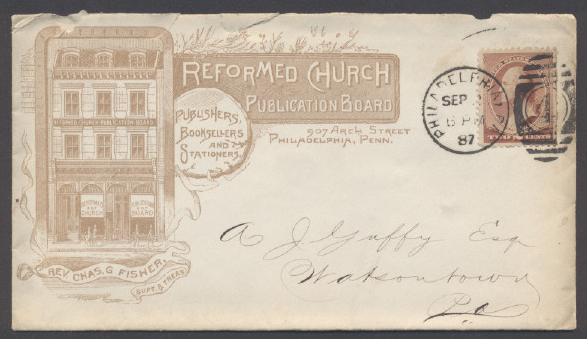 REFORMED CHURCH
PUBLICATION BOARD
907 ARCH STREET
PHILADELPHIA, PENN.
PUBLISHERS,
BOOKSELLERS
AND
STATIONERS.
REFORMED CHURCH PUBLICATION BOARD
REFORMED
CHURCH
PUBLICATION
BOARD
REV. CHAS. G. FISHER,
SUPT. & TREAS.
PHILADELPHIA
SEP
6 PM
87
A J Guffy Esq
Watsontown
Pa